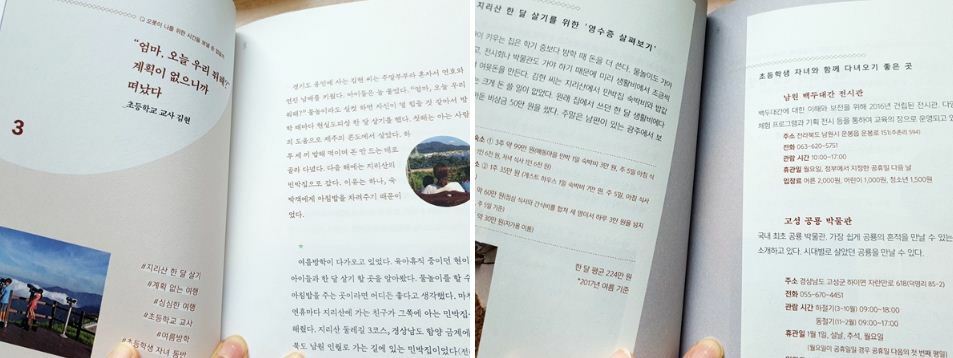 "엄마, 오늘 우리 뭐해?"
계획이 없으니까
떠났다
초등학교 교사 김현
3
#지리산 한 달 살기
#계획 없는 여행
#심심한 여행
#초등학교 교사
#여름방학
#초등학생 자녀 동반
경기도 용인에 사는 김현 씨는 주말부부라 혼자서 연호와
연진 남매를 키웠다. 아이들은 늘 물었다. "엄마, 오늘 우리
뭐해?" 물놀이라도 실컷 하면 자신이 덜 힘들 것 같아서 방
학 때마다 현실도피성 한 달 살기를 했다. 첫해는 아는 사람
의 도움으로 제주의 콘도에서 살았다. 하
루 세 끼 밥해 먹이며 돈 만 드는 데로
골라 다녔다. 다음 해에는 지리산의
민박집으로 갔다. 이유는 하나, 숙
박객에게 아침밥을 차려주기 때문이
었다.
여름방학이 다가오고 있었다. 육아휴직 중이던 현이
아이들과 한 달 살기 할 곳을 알아봤다. 물놀이를 할 수
아침밥을 주는 곳이라면 어디든 좋다고 생각했다. 마침
연휴마다 지리산에 가는 친구가 그쪽에 아는 민박집
해줬다. 지리산 둘레길 3코스, 경상남도 함양 금계에
북도 남원 인월로 가는 길에 있는 민박집이었다
지리산 한 달 살기를 위한 '영수증 살펴보기'
이 키우는 집은 학기 중보다 방학 때 돈을 더 쓴다. 물놀이도 가야
고, 전시회나 박물관도 가야 하기 때문에 미리 생활비에서 조금씩
여윳돈을 만든다. 김현 씨는 지리산에서 민박집 숙박비와 밥값
는 크게 돈 쓸 일이 없었다. 원래 집에서 쓰던 한 달 생활비에다
비상금 50만 원을 썼다. 주말은 남편이 있는 광주에서 보
한 달 평균 224만 원
*2017년 여름 기준
초등학생 자녀와 함께 다녀오기 좋은 곳
남원 백두대간 전시관
백두대간에 대한 이해와 보전을 위해 2016년 건립된 전시관. 다양
체험 프로그램과 기획 전시 등을 통하여 교육의 장으로 운영되고 있
주소 전라북도 남원시 운봉읍 운봉로 151(주촌리 594)
전화 063-620-5751
관람 시간 10:00~17:00
휴관일 월요일, 정부에서 지정한 공휴일 다음 날
입장료 어른 2,000원, 어린이 1,000원, 청소년 1,500원
고성 공룡 박물관
국내 최초 공룡 박물관. 가장 쉽게 공룡의 흔적을 만날 수 있는
소개하고 있다. 시대별로 살았던 공룡을 만날 수 있다.
주소 경상남도 고성군 하이면 자란만로 618(덕명리 85-2)
전화 055-670-4451
관람 시간 하절기(3~10월) 09:00~18:00
동절기(11~2월) 09:00~17:00
휴관일 1월 1일, 설날, 추석, 월요일
(월요일이 공휴일일 경우 공휴일 다음의 첫 번째 평일)